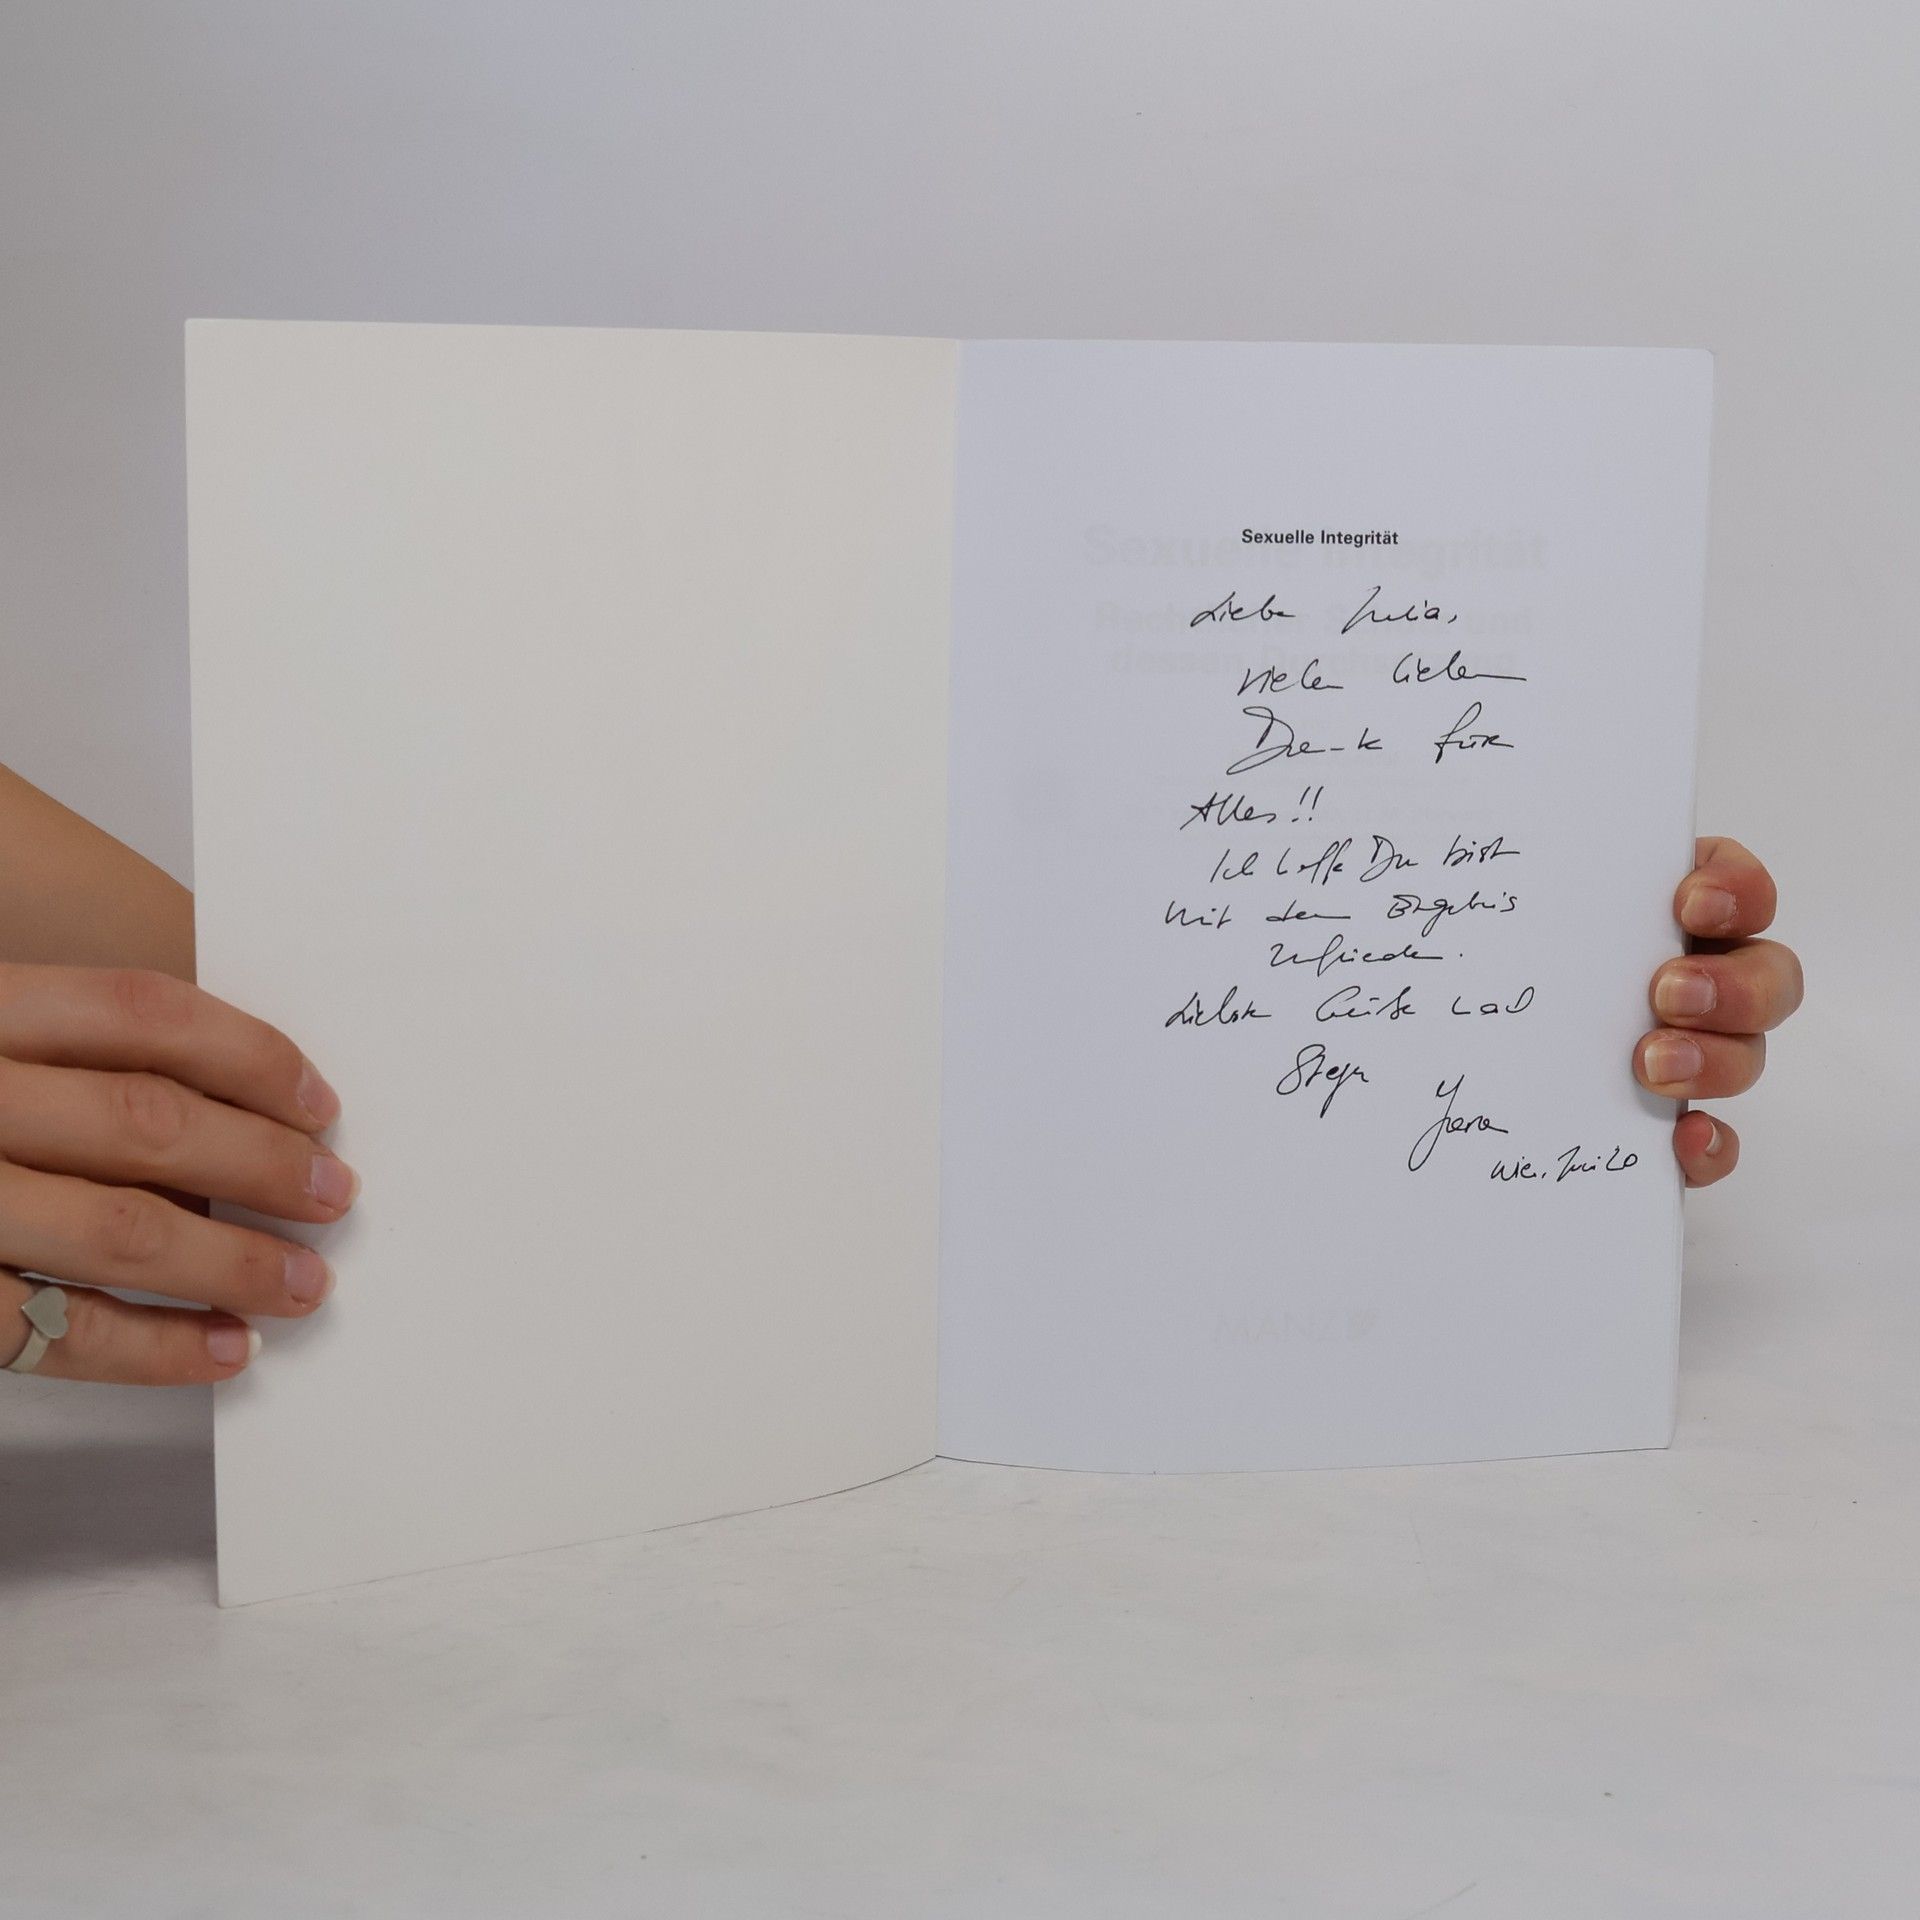 Sexuelle Integrität
Liebe Julia,
vielen lieben
Dank für
Alles!!
Ich hoffe Du bist
mit dem Ergebnis
zufrieden.
Liebste Grüße
wien, Juni 20
MANZ